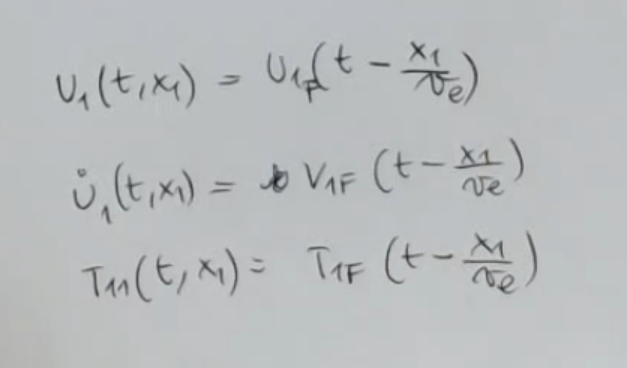 U₁(t, x₁) = U₁F(t − x₁/ve)
u̇₁(t, x₁) = V₁F (t − x₁/ve)
T₁₁(t, x₁) = T₁F (t − x₁/ve)